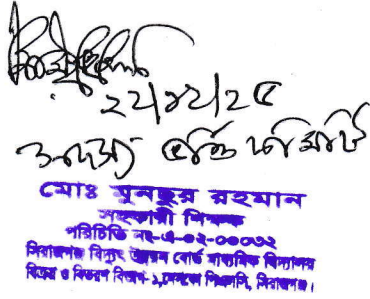 ২২/১২/২৫
সদস্য ভর্তি কমিটি
মোঃ মুনছুর রহমান
সহকারী শিক্ষক
পরিচিতি নং-এ-০২-০০০৩২
সিরাজগঞ্জ বিদ্যুৎ উন্নয়ন বোর্ড মাধ্যমিক বিদ্যালয়
বিক্রয় ও বিতরণ বিভাগ-১, সিরাজগঞ্জ।